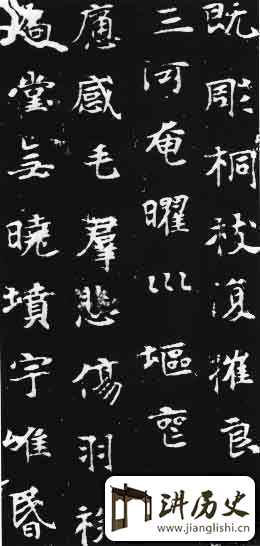 既彫桐枝復摧良
三河奄曜巛堰喪
痛感毛羣悲傷羽族
扃堂無曉墳宇唯昏
讲历史
www.jianglishi.cn